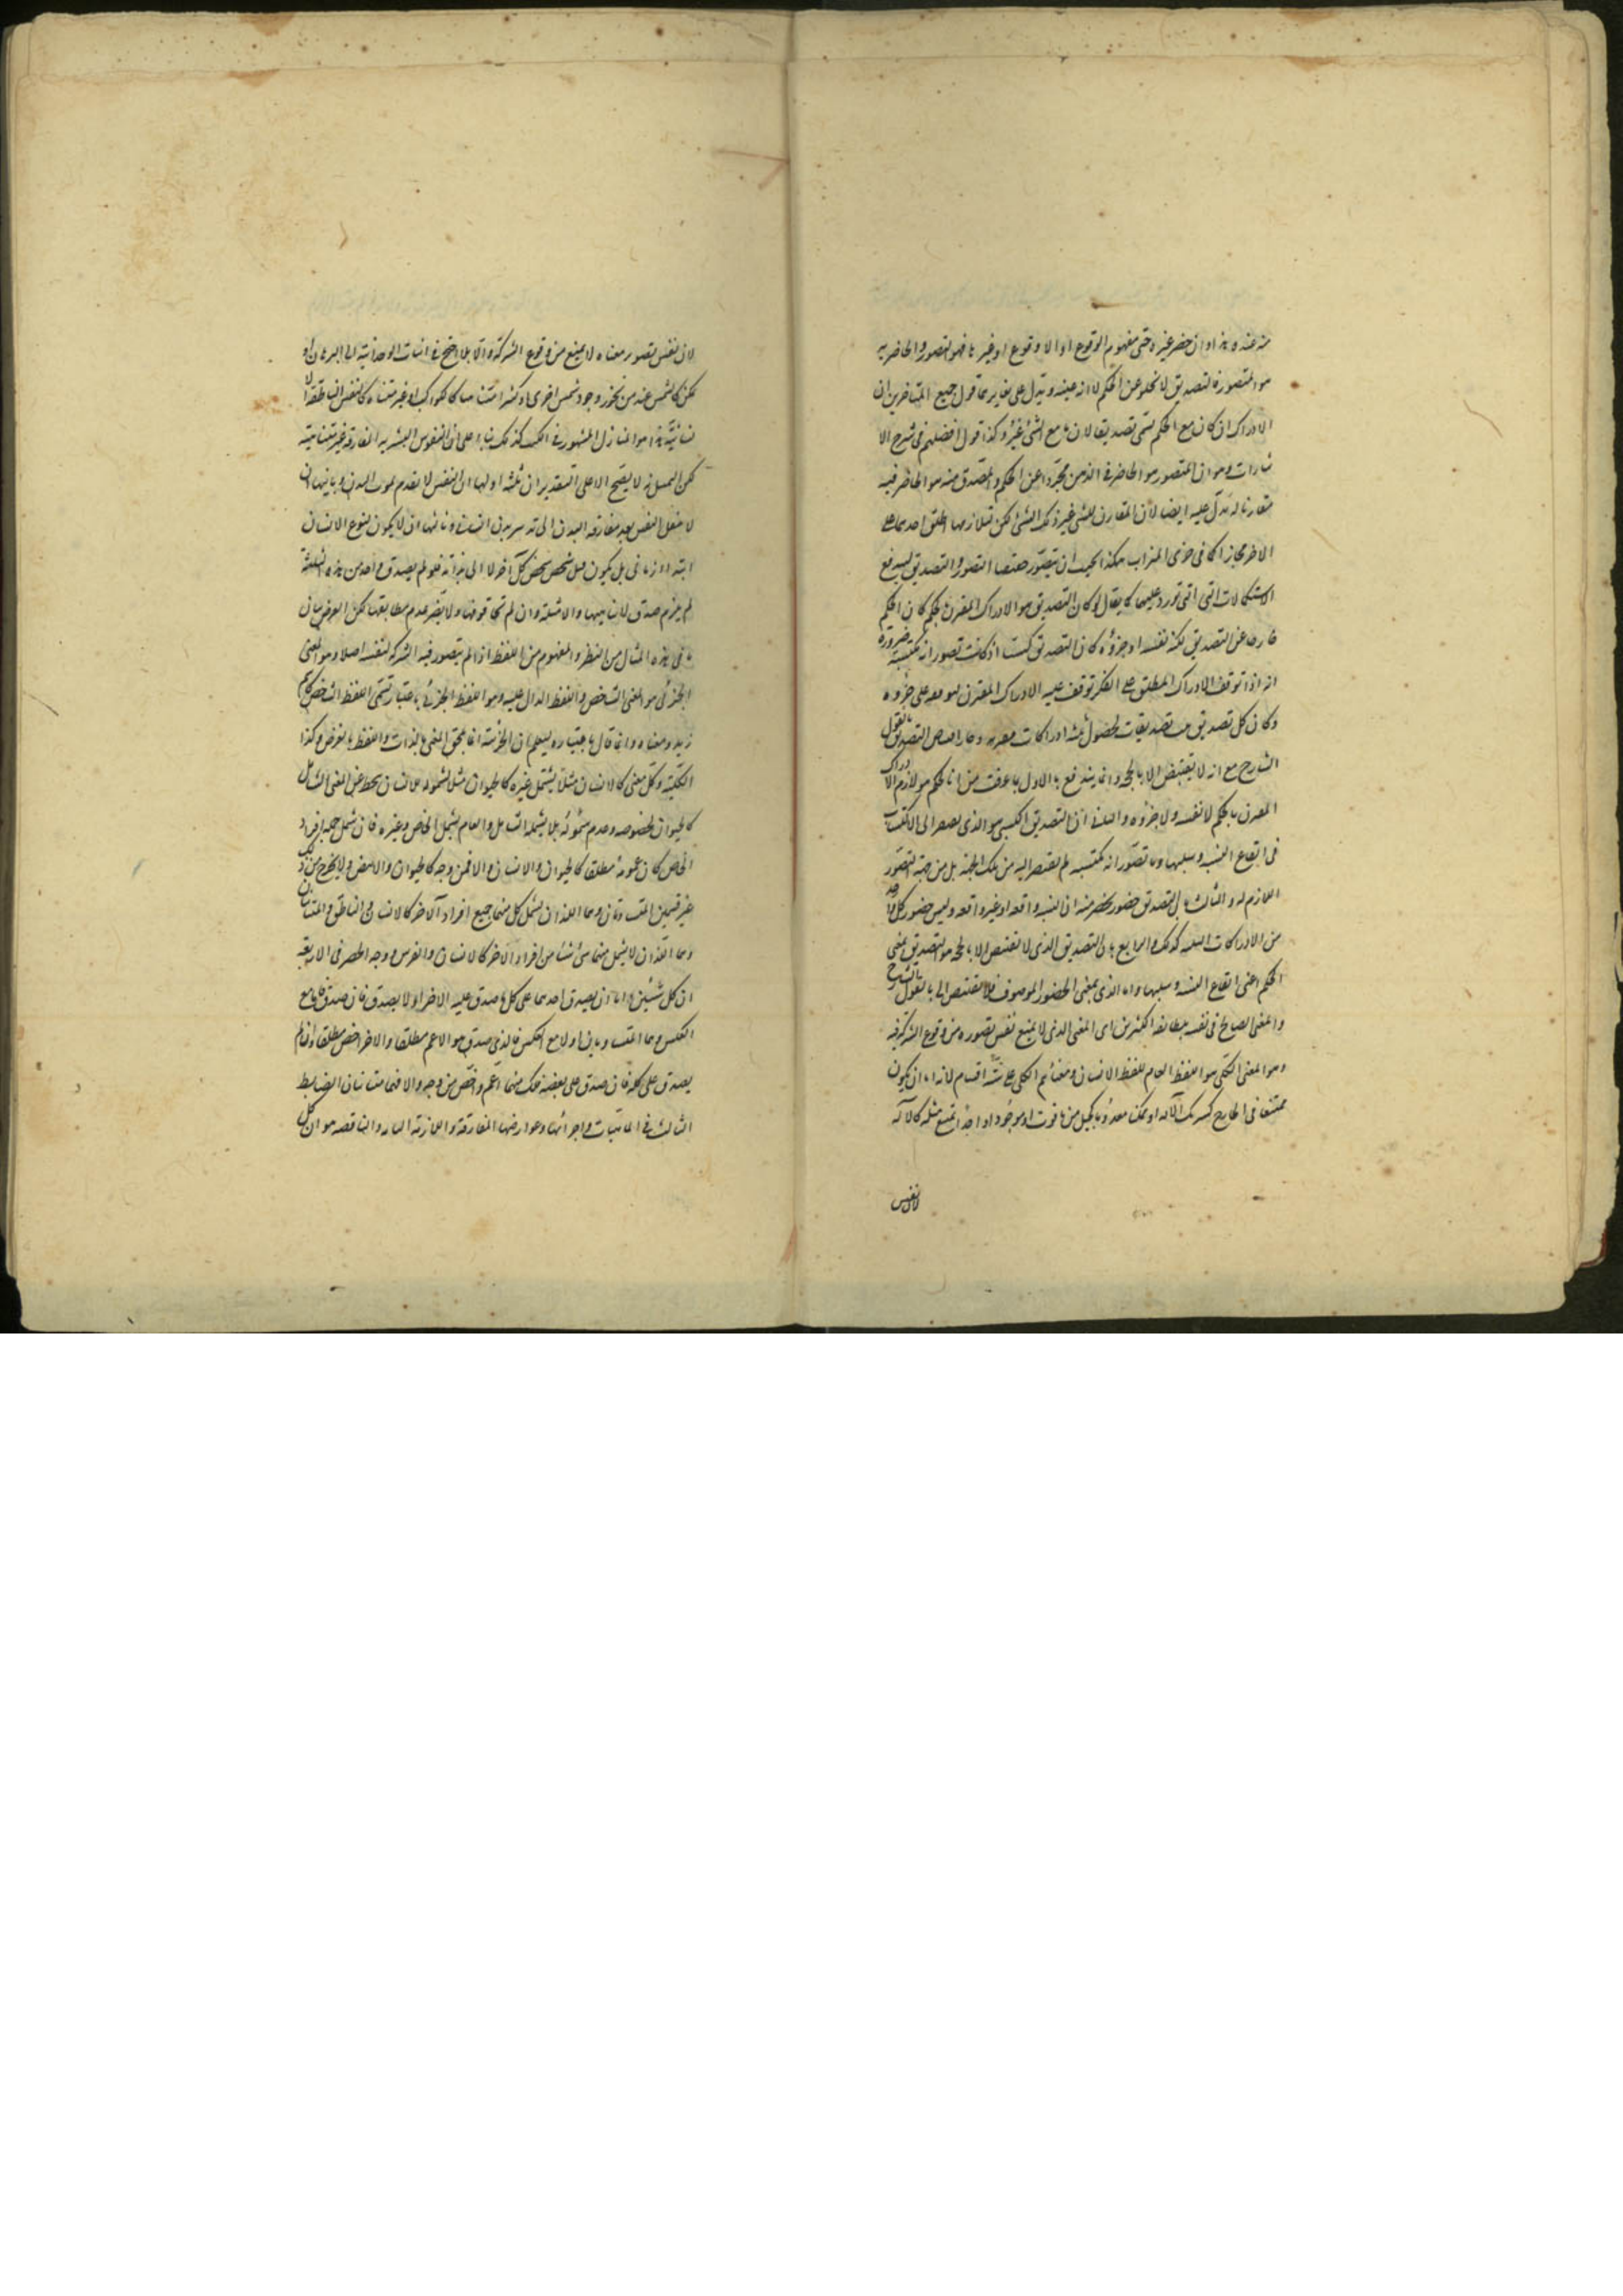 منه عنده هذا وان حضر غيره حتى مفهوم الوقوع او اللا وقوع او غيرهما فهو التصور والحاضر به
هو المتصور فالتصديق لا يخلو عن الحكم لا انه عينه ويدل على تغايرهما قول جميع المتأخرين ان
الادراك ان كان مع الحكم يسمى تصديقا لان ما مع الشئ غيره وكذا قول افضلهم فى شرح الا
شارات وهو ان المتصور هو الحاضر فى الذهن مجردا عن الحكم والمصدق به هو الحاضر فيه
مقارنا له يدل عليه ايضا لان المقارن للشئ غير ذلك الشئ لكن لتلازمهما اطلق احدهما على
الاخر مجازا كما فى جرى الميزاب هكذا يجب ان يتصور حقيقتا التصور والتصديق ليندفع
الاشكالات التى تورد عليهما كما يقال لو كان التصديق هو الادراك المقرن بالحكم كان الحكم
خارجا عن التصديق لكنه نفسه او جزؤه كان التصديق كسبيا اذ كانت تصوراته مكتسبة ضرورة
انه اذا توقف الادراك المطلق على الفكر توقف عليه الادراك المقترن لتوقفه على جزوه
وكان كل تصديق تصديقات لحصول ثلثة ادراكات مقرنه وحار اقتناص التصديق بالقول
الشارح مع انه لا يقتنص الا بالحجة وانما يندفع الاول بما عرفت من ان الحكم هو لازم الادراك
المقرن بالحكم لا نفسه ولا جزؤه والثانى ان التصديق الكسبى هو الذى يفتقر الى الاكتساب
فى ايقاع النسبة وسلبها وما تصوراته مكتسبه لم يفتقر اليه من تلك الجهة بل من جهة التصور
اللازم له والثالث بان التصديق حضور يحضر منه ان النسبه واقعه او غير واقعه وليس حضور كل واحد
من الادراكات الثلثه كذلك والرابع بان التصديق الذى لا يقتنص الا بالحجة هو التصديق بمعنى
الحكم اعنى ايقاع النسبه وسلبها واما الذى بمعنى الحضور الموصوف فلا يقتنص الا بالقول الشارح
والمعنى الصالح فى نفسه لمطابقه الكثيرين اى المعنى الذى لا يمنع نفس تصوره من وقوع الشركة فيه
وهو المعنى الكلى هو اللفظ العام للفظ الانسان ومعناه ثم الكلى على ستة اقسام لانه اما ان يكون
ممتنعا فى الخارج كشريك الاله او يمكن معدوما كجبل من ياقوت او موجودا واحدا يمتنع مثله كالاله
لان نفس
لان نفس تصور معناه لا يمنع من وقوع الشركة والا لما احتيج فى اثبات الوحدانية الى البرهان او
يمكن كالشمس عند من يجوز وجود شمس اخرى او كثيرا متناهيا كالكواكب او غير متناه كالنفس الناطقة الا
نسانية هذا هو المنازل المشهور فى الكتب كذلك بناء على ان النفوس البشريه المفارقة غير متناهية
لكن التمثيل به لا يصح الا على التقدير ان ثلثه اولها ان النفس لا يعدم بموت البدن وثانيها ان
لا ينتقل النفس بعد مفارقه البدن الى تدبير بدن انسانى وثالثها ان لا يكون لنوع الانسان
ابتداء زمانى بل يكون قبل شخص شخص آخر لا الى نهاية فلو لم يصدق واحد من هذه الثلثة
لم يلزم صدق لا تناهيها والامثلة وان لم تحاقوقها ولا يضر عدم مطابقها لكن الغرض بيان
ما فى هذه المثال من النظر والمفهوم من اللفظ اذا لم يتصور فيه الشركه لنفسه اصلا وهو المعنى
الجزئى هو المعنى الشاخص واللفظ الدال عليه وهو اللفظ الجزئى باعتباره يسمى اللفظ الشاخص كاسم
زيد ومعناه وانما قال باعتباره ليعلم ان الجزئية انما يلحق المعنى بالذات واللفظ بالعرض وكذا
الكلية وكل معنى كالانسان مثلا يشتمل غيره كالحيوان مثلا لشموله الانسان يحط عن المعنى الشامل
كالحيوان لخصوصه وعدم شموله بما يشمله الشامل والعام يشمل الخاص وغيره فان شمل جملة افراد
الخاص كان عمومه مطلقا كالحيوان والانسان والا فمن وجه كالحيوان والابيض ولا يخرج من ذلك
غير قسمين المتساويان وهما اللذان يشمل كل منهما جميع افراد الآخر كالانسان والناطق والمتباينان
وهما اللذان لا يشمل منهما شئ شيئا من افراد الاخر كالانسان والفرس ووجه الحصر فى الاربعة
ان كل شيئين اما ان يصدق احدهما على كل ما صدق عليه الاخر او لا يصدق فان صدق فاما مع
العكس وهما المتساويان او لا مع العكس فالذى صدق هو الاعم مطلقا والاخر اخص مطلقا وان لم
يصدق على كله فان صدق على بعضه فكل منهما اعم واخص من وجه والا فهما متباينان الضابط
الثالث فى الماهيات واجزائها وعوارضها المفارقة واللازمة التامه والناقصه هو ان كل